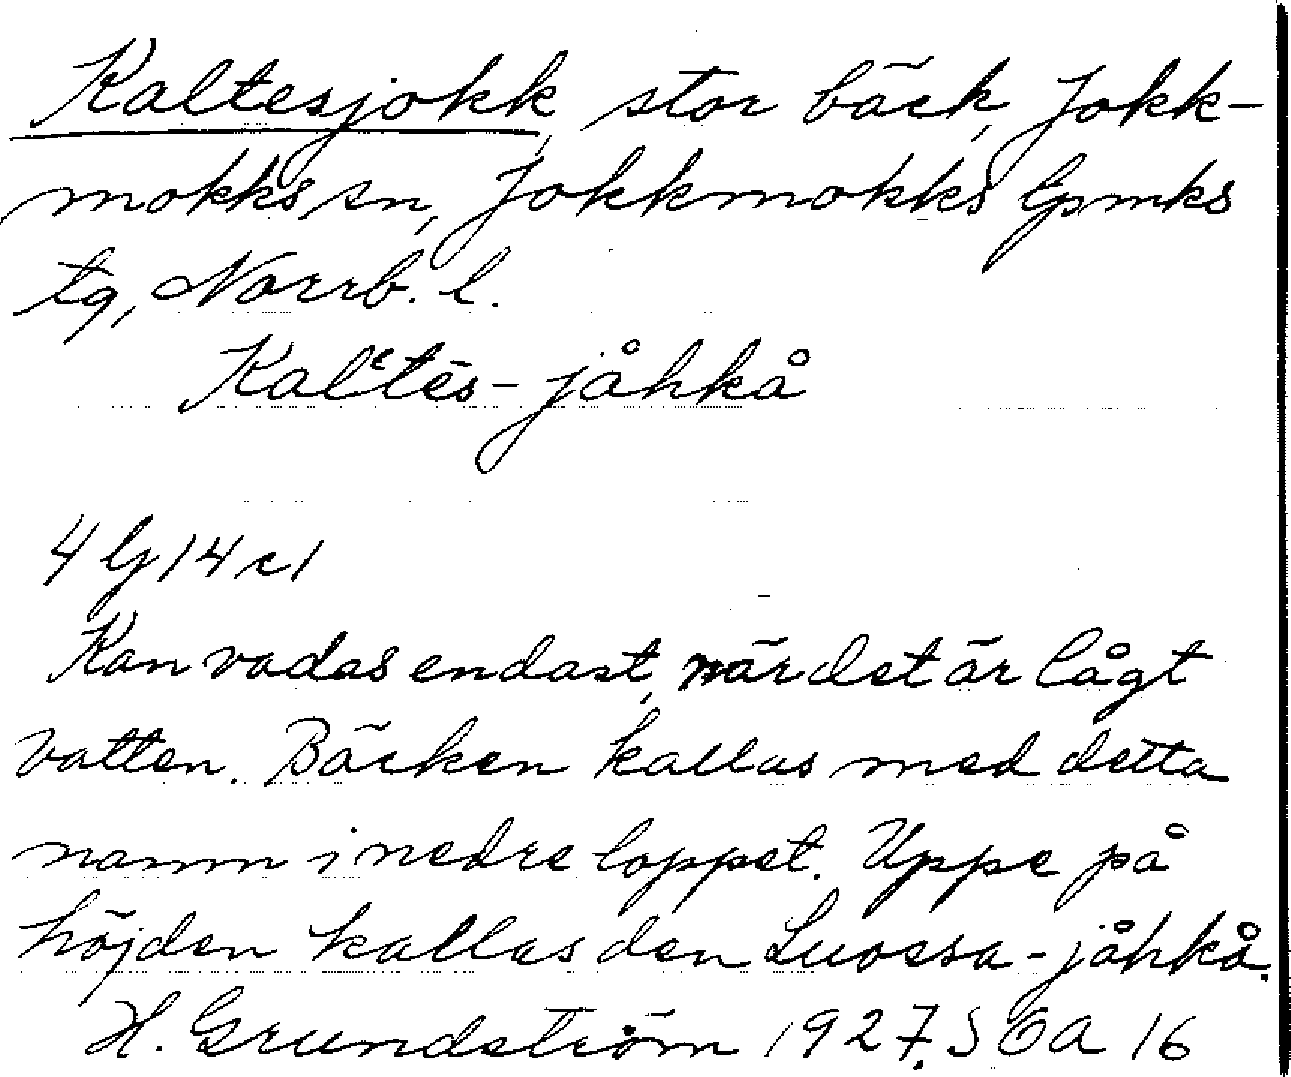 Kaltesjokk, stor bäck, Jokk-
mokks sn, Jokkmokks lpmks
tg, Norrb. l.
Kalʿtēs-jåhkå
4 G 14 c 1
Kan vadas endast, när det är lågt
vatten. Bäcken kallas med detta
namn i nedre loppet. Uppe på
höjden kallas den Luossa-jåhkå.
H. Grundström 1927. SOA 16